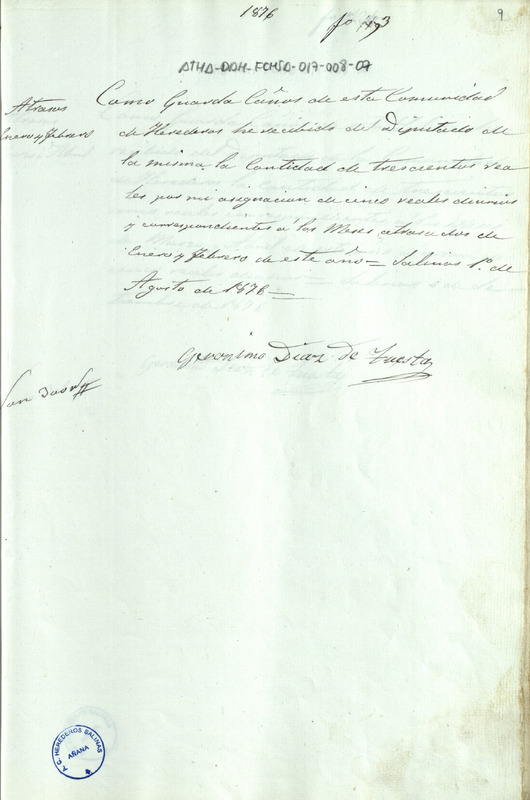 1876
fo 3
9
ATHA-DAH-FCHSA-017-008-07
Atrasos
Enero y Febrero
Como Guarda Caños de esta Comunidad
de Herederos he recibido del Diputado de
la misma la Cantidad de trescientos rea
les por mi asignacion de cinco reales diarios
y correspondientes á los Meses atrasados de
Enero y Febrero de este año = Salinas 1º. de
Agosto de 1876 =
Geronimo Diaz de Tuesta
Son 300 r
A.C. HEREDEROS SALINAS
AÑANA